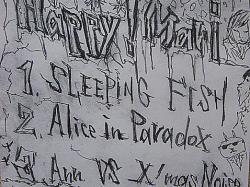 Happy! Maki
1. SLEEPING FISH
2. Alice in Paradox
3. Ann VS X'mas